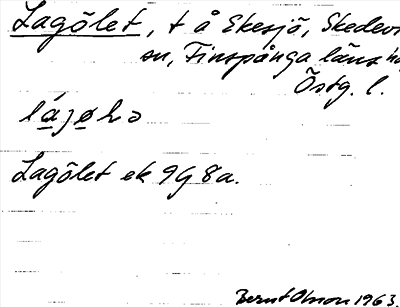 Lagölet, t å Ekesjö, Skedevi
sn, Finspånga läns hd
Östg. l.
Lagölet ek 9G 8a.
Bernt Olsson 1963.